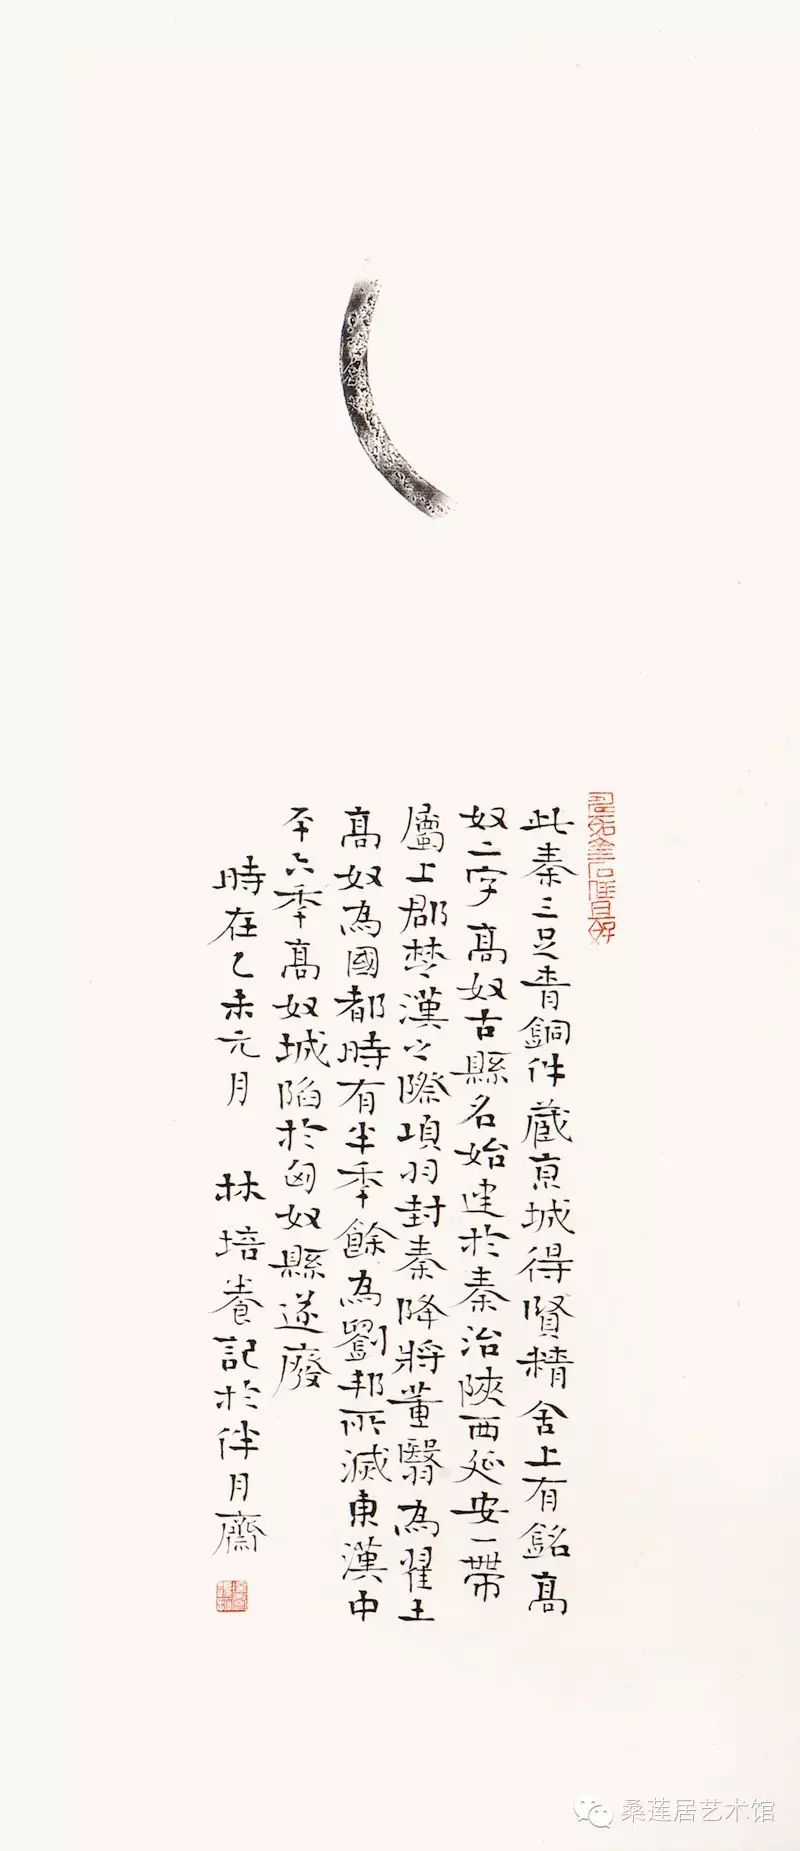 此秦三足青銅件藏京城得賢精舍上有銘高
奴二字高奴古縣名始建於秦治陝西延安一帶
屬上郡楚漢之際項羽封秦降將董翳為翟王
高奴為國都時有半季餘為劉邦所滅東漢中
平六季高奴城陷於匈奴縣遂廢
時在乙未元月 林培養記於伴月齋
桑莲居艺术馆